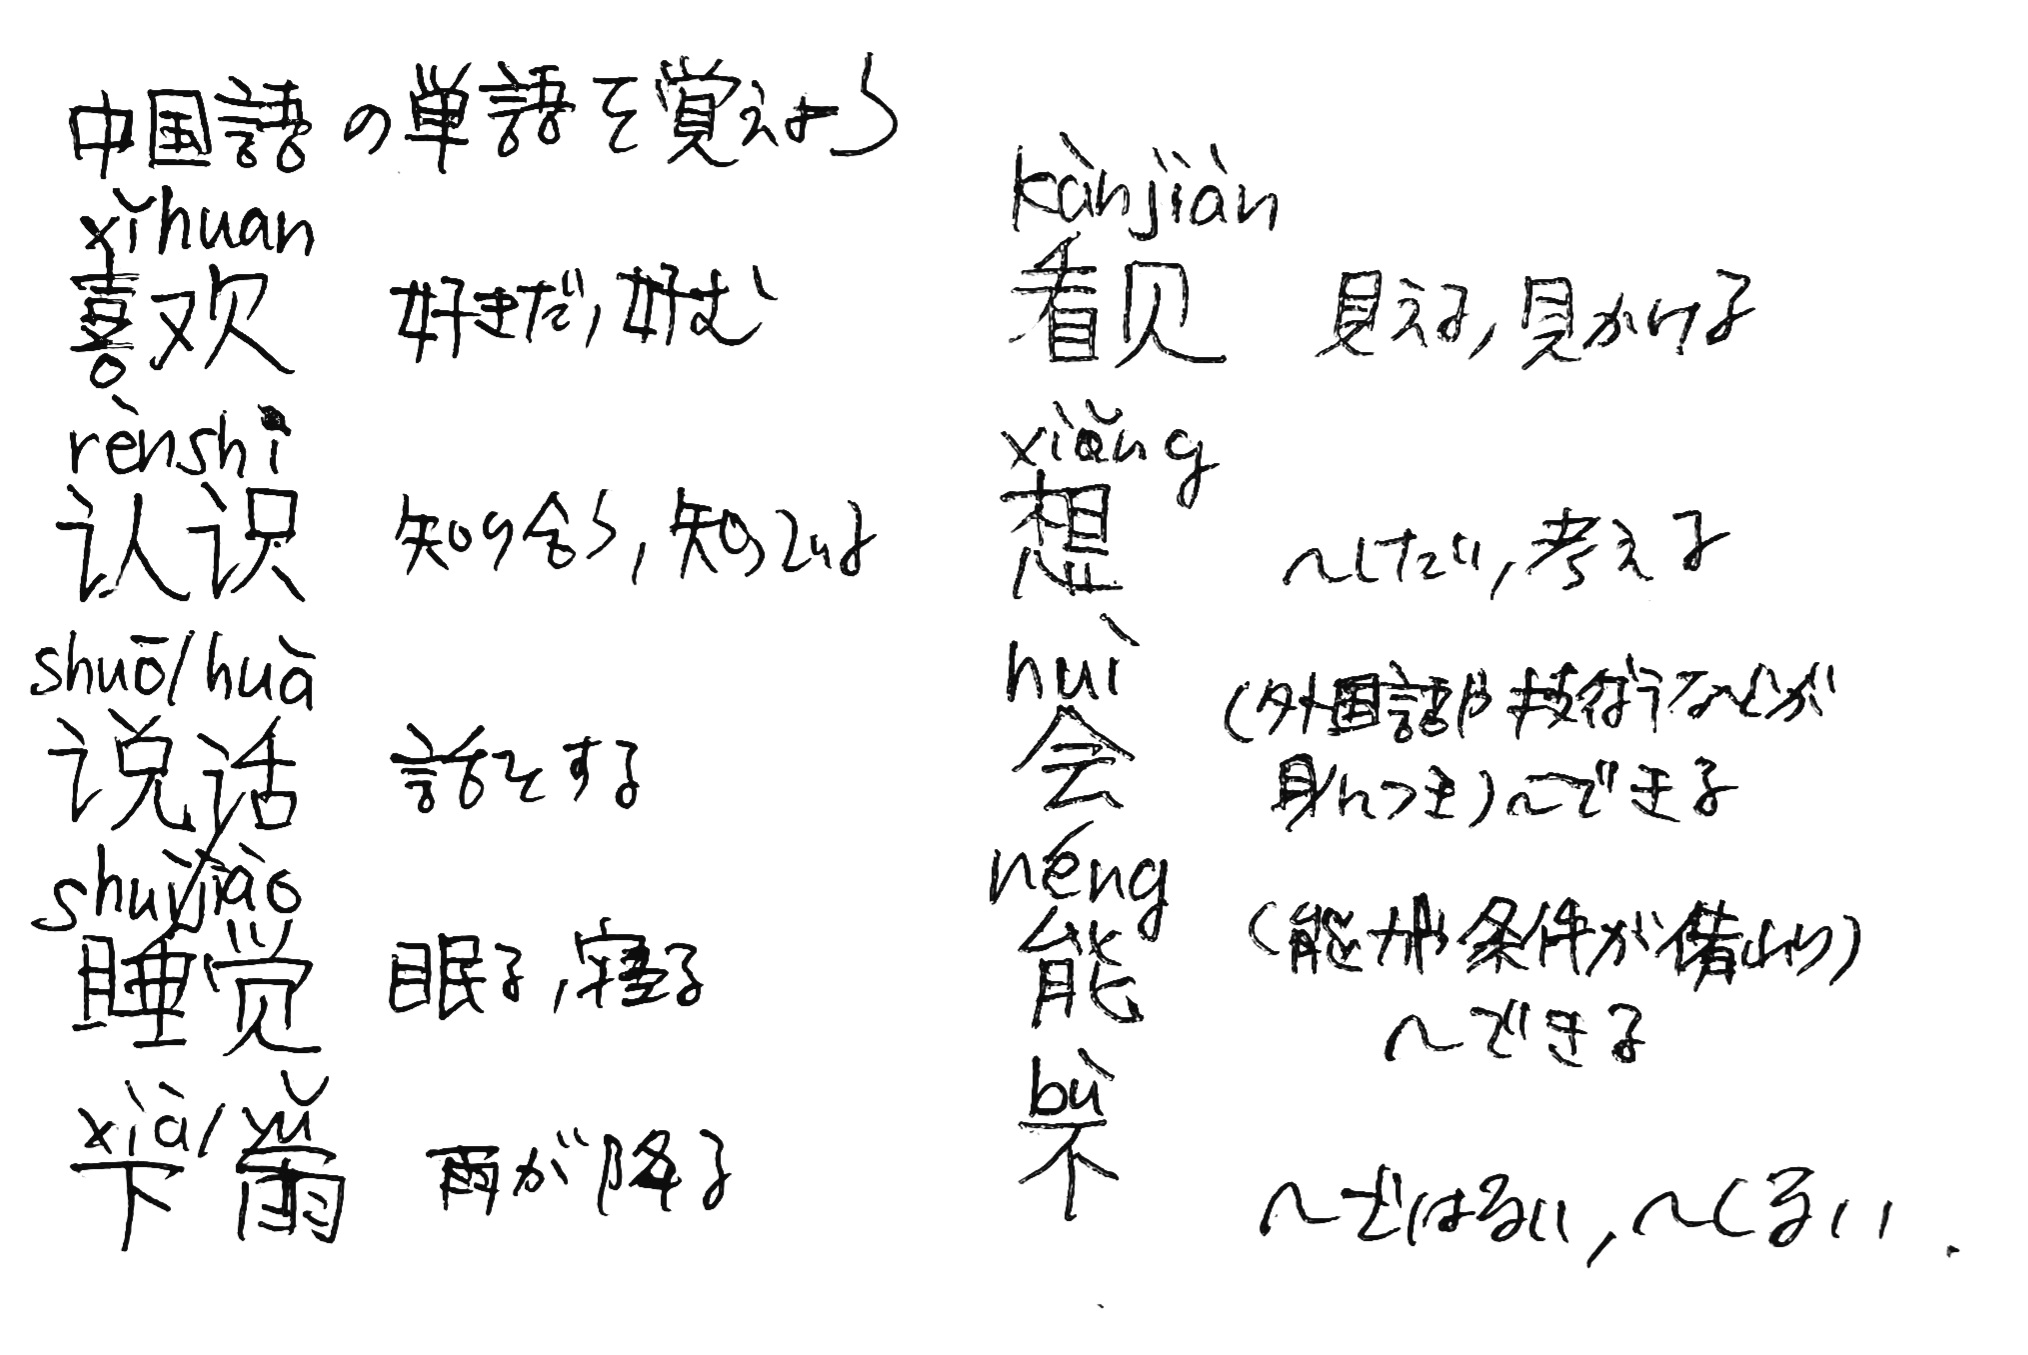 中国語の単語を覚えよう
xǐhuan
喜欢 好きだ,好む
rènshi
认识 知り合う,知っている
shuō/huà
说话 話をする
shuìjiào
睡觉 眠る,寝る
xià/yǔ
下雨 雨が降る
kànjiàn
看见 見える,見かける
xiǎng
想 〜したい,考える
huì
会 (外国語や技術などが
身につき)〜できる
néng
能 (能力や条件が備わり)
〜できる
bù
不 〜ではない,〜しない.